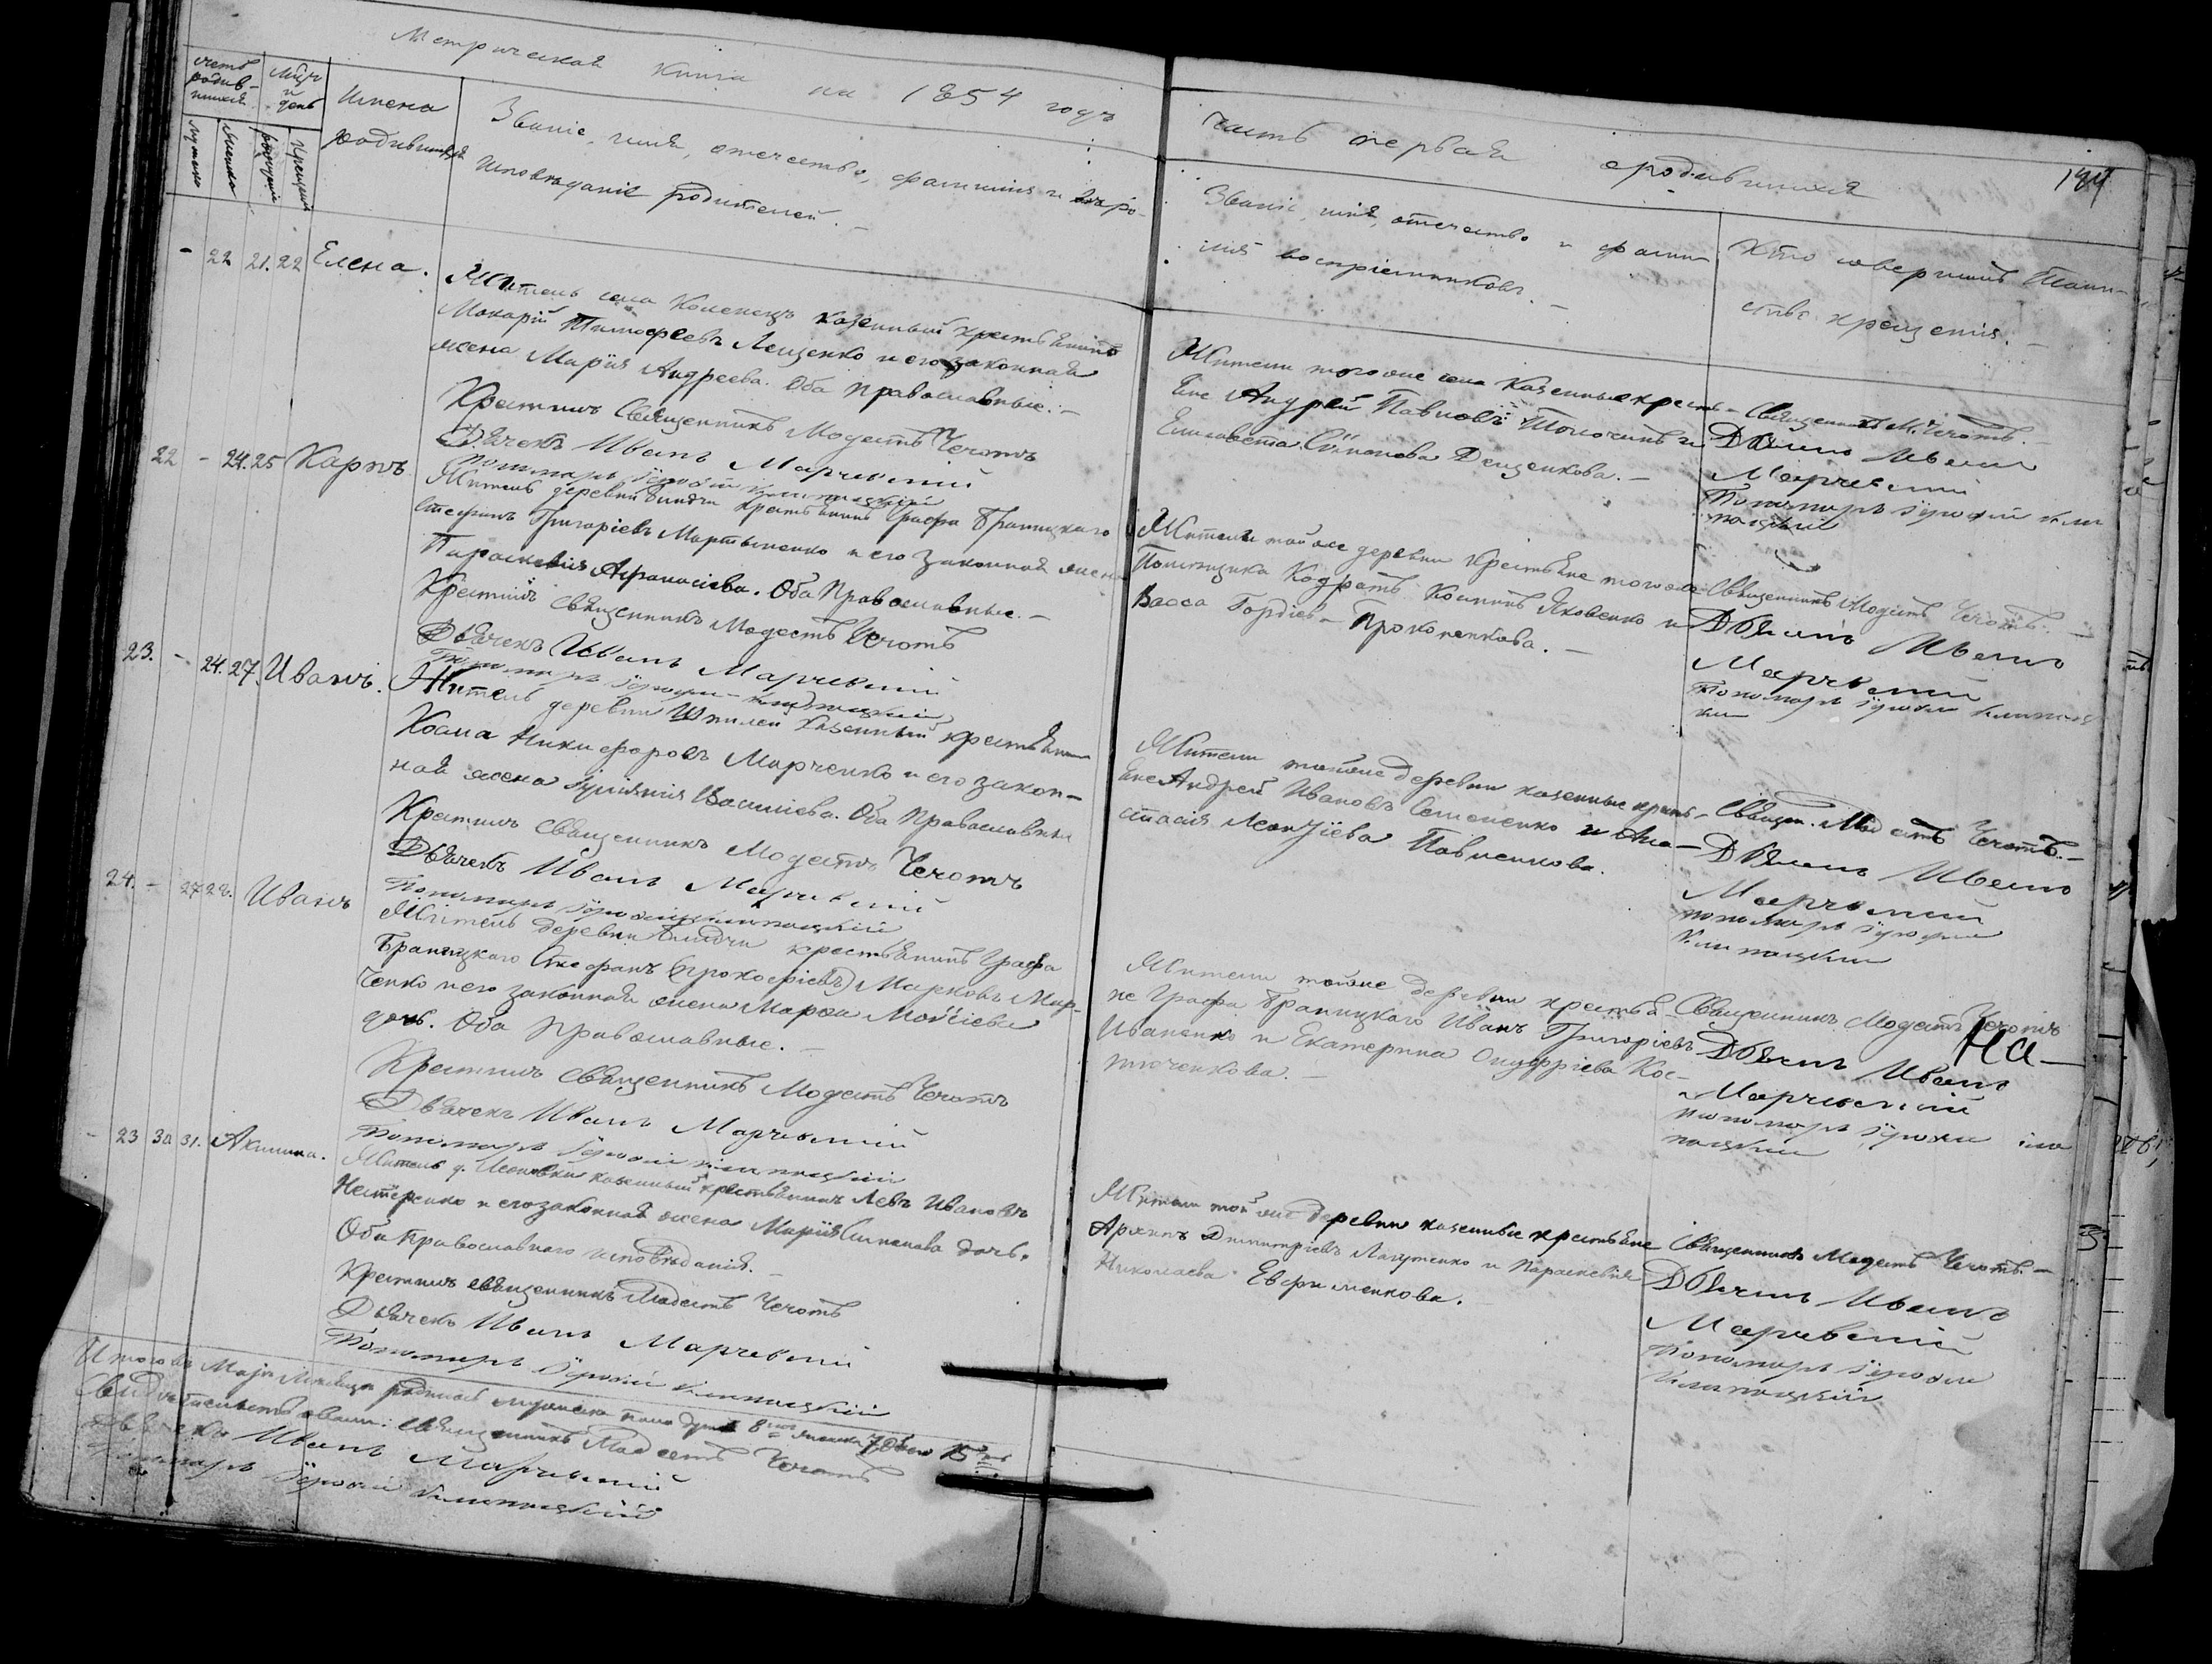 Метрическая книга на 1854 годъ
часть первая о родившихся
194
Счетъ родив-
шихся
Мѣсяцъ и день
Имена
родившихся
Званіе, имя, отечество, фамилія и вѣро-
исповѣданіе родителей.
Званіе, имя, отечество и фами-
лія воспріемниковъ.
Кто совершилъ таин-
ство крещенія.
мужеска
женска
рожденія
крещенія
- 22 21. 22 Елена.
Житель села Каменецъ казенный крестьянинъ
Макарій Тимофеевъ Лещенко и его законная
жена Марія Андреева. Оба православные. -
Крестилъ Священникъ Модестъ Чеготъ
Дьячекъ Иванъ Марчевскій
Пономарь
Жители того же села казенные кресть-
яне Андрей Павловъ и
Елисавета Стѣпанова Деценкова. -
Священникъ М. Чеготъ. -
Дьячекъ Иванъ
Марчевскій
Пономарь
22 - 24. 25 Карпъ
Житель деревни крестьянинъ Графа Браницкаго
Стефанъ Григоріевъ Мартыненко и его законная жена
Параскевія Афанасіева. Оба Православные. -
Крестилъ Священникъ Модестъ Чеготъ
Дьячекъ Иванъ Марчевскій
Пономарь
Жители той же деревни крестьяне того же
Помѣщика Кодратъ Яковенко и
Васса Гордіев- Прокопенкова. -
Священникъ Модестъ Чеготъ. -
Дьячекъ Иванъ
Марчевскій
Пономарь
23. - 24. 27. Иванъ.
Житель деревни казенный крестьянинъ
Косма Никифоровъ Марченко и его закон-
ная жена Іуліянія Василіева. Оба Православные
Крестилъ Священникъ Модестъ Чеготъ
Дьячекъ Иванъ Марчевскій
Пономарь
Жители той же деревни казенные кресть-
яне Андрей Ивановъ Семененко и Ана-
стасія Леонтіева Павленкова.
Священ. Модестъ Чеготъ. -
Дьячекъ Иванъ
Марчевскій
пономарь
24. - 27 28. Иванъ
Житель деревни крестьянинъ Графа
Браницкаго Стефанъ (Прокофіевъ) Марковъ Мар-
ченко и его законная жена Марфа Моусіева
дочь. Оба Православные. -
Крестилъ священникъ Модестъ Чеготъ
Дьячекъ Иванъ Марчевскій
Пономарь
Жители той же деревни крестья-
не Графа Браницкаго Иванъ Григоріевъ
Иваненко и Екатерина Онуфріева Кос-
тюченкова. -
Священникъ Модестъ Чеготъ
На-
Дьячекъ Иванъ
Марчевскій
пономарь
- 23 30 31. Акилина.
Житель д. казенный крестьянинъ Левъ Ивановъ
Нестеренко и его законная жена Марія Симонова дочь.
Оба Православнаго исповѣданія. -
Крестилъ священникъ Модестъ Чеготъ
Дьячекъ Иванъ Марчевскій
Пономарь
Жители той же деревни казенные крестьяне
Архипъ Димитріевъ и Параскевія
Николаева Ефрименкова.
Священникъ Модестъ Чеготъ. -
Дьячекъ Иванъ
Марчевскій
Пономарь
Итого въ Маѣ Мѣсяцѣ мужеска пола душъ 8 женска 7 обоего 15
Свидѣтельствовали: священникъ Модестъ Чеготъ
Дьячекъ Иванъ Марчевскій
Пономарь